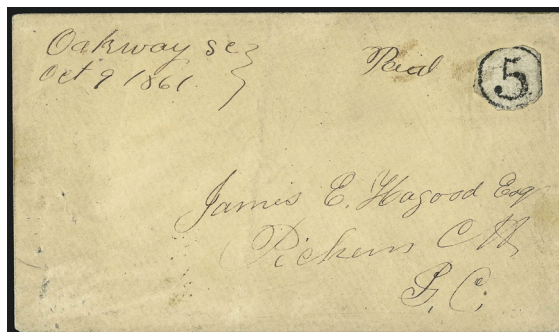 Oakway SC
Oct 9 1861
Paid
5
James E. Hagood Esq
Pickens C H
S. C.